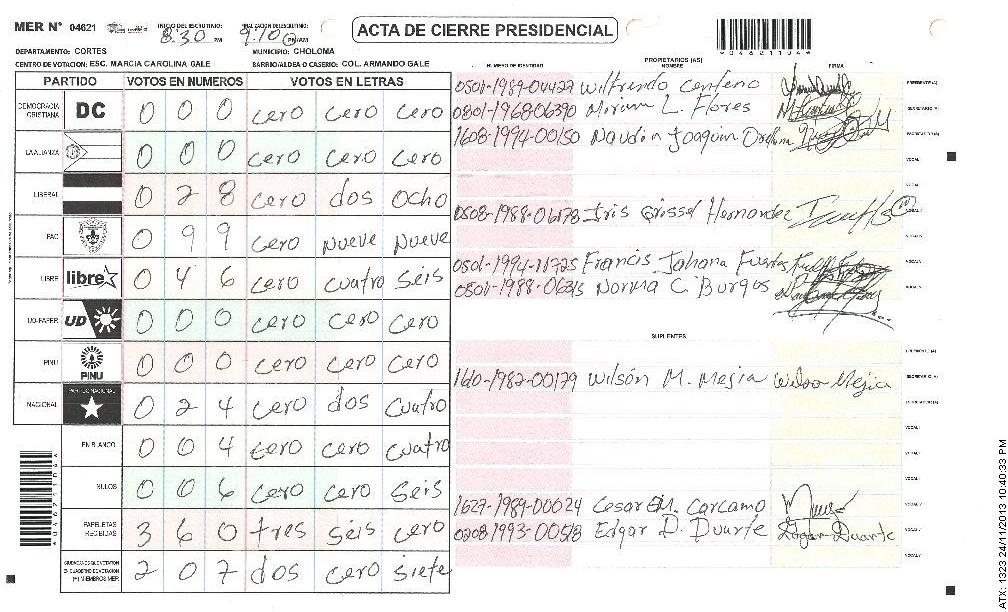 MER N° 04621
INICIO DEL ESCRUTINIO:
8:30 PM
9:10 PM/AM
ACTA DE CIERRE PRESIDENCIAL
*04621104*
DEPARTAMENTO: CORTES
MUNICIPIO: CHOLOMA
CENTRO DE VOTACION: ESC. MARCIA CAROLINA GALE
BARRIO/ALDEA O CASERIO: COL. ARMANDO GALE
PARTIDO VOTOS EN NUMEROS VOTOS EN LETRAS
DEMOCRACIA CRISTIANA DC 0 0 0 cero cero cero
LA ALIANZA 0 0 0 cero cero cero
LIBERAL 0 2 8 cero dos ocho
PAC 0 9 9 cero nueve nueve
LIBRE libre 0 4 6 cero cuatro seis
UD-FAPER UD 0 0 0 cero cero cero
PINU PINU 0 0 0 cero cero cero
NACIONAL PARTIDO NACIONAL 0 2 4 cero dos cuatro
EN BLANCO 0 0 4 cero cero cuatro
NULOS 0 0 6 cero cero seis
PAPELETAS RECIBIDAS 3 6 0 tres seis cero
CIUDADANOS QUE VOTARON EN CUADERNO DE VOTACION (+) MIEMBROS MER 2 0 7 dos cero siete
PROPIETARIOS (AS)
NUMERO DE IDENTIDAD NOMBRE FIRMA
0501-1989-04427 Wilfredo Centeno PRESIDENTE (A)
0801-1968-06390 Miriam L. Flores SECRETARIO (A)
1608-1994-00150 Joaquin
VOCAL
0508-1988-06178 Iris Grissel Hernandez
0501-1994-11725 Francis Johana Fuentes
0501-1988-06313 Norma C. Burgos
SUPLENTES
1610-1982-00179 Wilson M. Mejia Wilson Mejia
1627-1989-00024 Cesar M. Carcamo
0208-1993-00518 Edgar D. Duarte Edgar Duarte
ATX: 1323 24/11/2013 10:40:33 PM